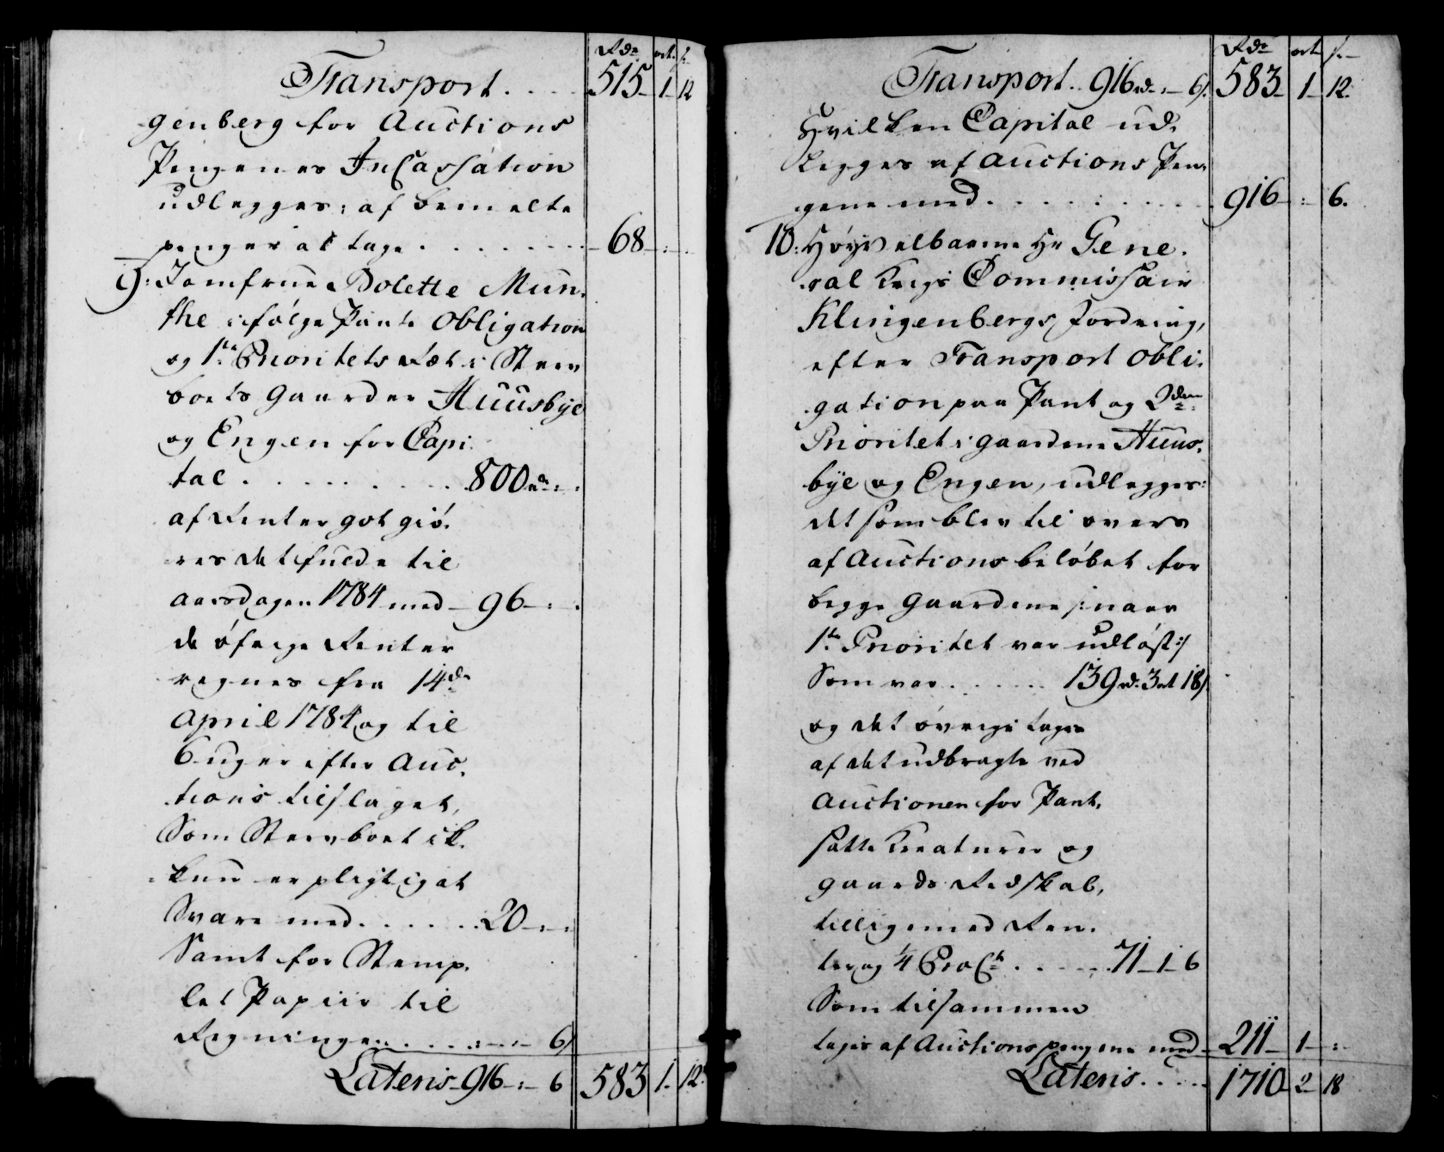 Rdr ort. s.
Transport . . . . 515 - 1 - 12
genberg for Auctions
Pengenes Incassation
udlegges, af bemelte
penger at tage . . . . . . . - 68 - : -
9: Jomfrue Bolette Mun-
the ifølge Pante Obligation
og 1te Prioritets Ræt i Sterv
boets Gaarder Huusbye
og Engen for Capi-
tal . . . . . . . . . 800 rdr : :
af Renter godtgiö-
res det fulde til
aarsdagen 1784 med - 96 - : -
de öfrige Renter
regnes fra 14de
April 1784 og til
6 uger efter Auc-
tions tilslaget,
Som Stervboet ik-
kun er pligtig at
Svare med . . . . . . 20 - : -
Samt for Stemp-
let Papiir til
Regningen . . . . : - : - 6
Lateris - 916 - : - 6 583 1 - 12
Rdr ort s.
Transport . . 916 rd : - 6 s. 583 - 1 - 12
Hvilken Capital ud-
legges af Auctions Pen-
gene med . . . . . . . . . 916 - : - 6.
10: Høyvelbaarne Hr Gene-
ral Krigs Commissair
Klingenbergs Fordring,
efter Transport Obli-
gation paa Pant og 2den
Prioritet i gaardene Huus-
bye og Engen, udlegges
det som blev til overs
af Auctions beløbet for
begge Gaardene /: naar
1te Prioritet var udløst :/
Som var . . . . . . 139 rd. 3 ort 18 s
og det øvrige tages
af det udbragte ved
Auctionen for Pant-
satte Creaturer og
gaards Redskab,
tilligemed Ren-
ter og 1/4 Pro Ct . . . . . 71 - 1 - 6
Som tilsammen
tages af Auctions pengene med - 211 - 1 - :
Lateris . . . . . 1710 - 2 - 18